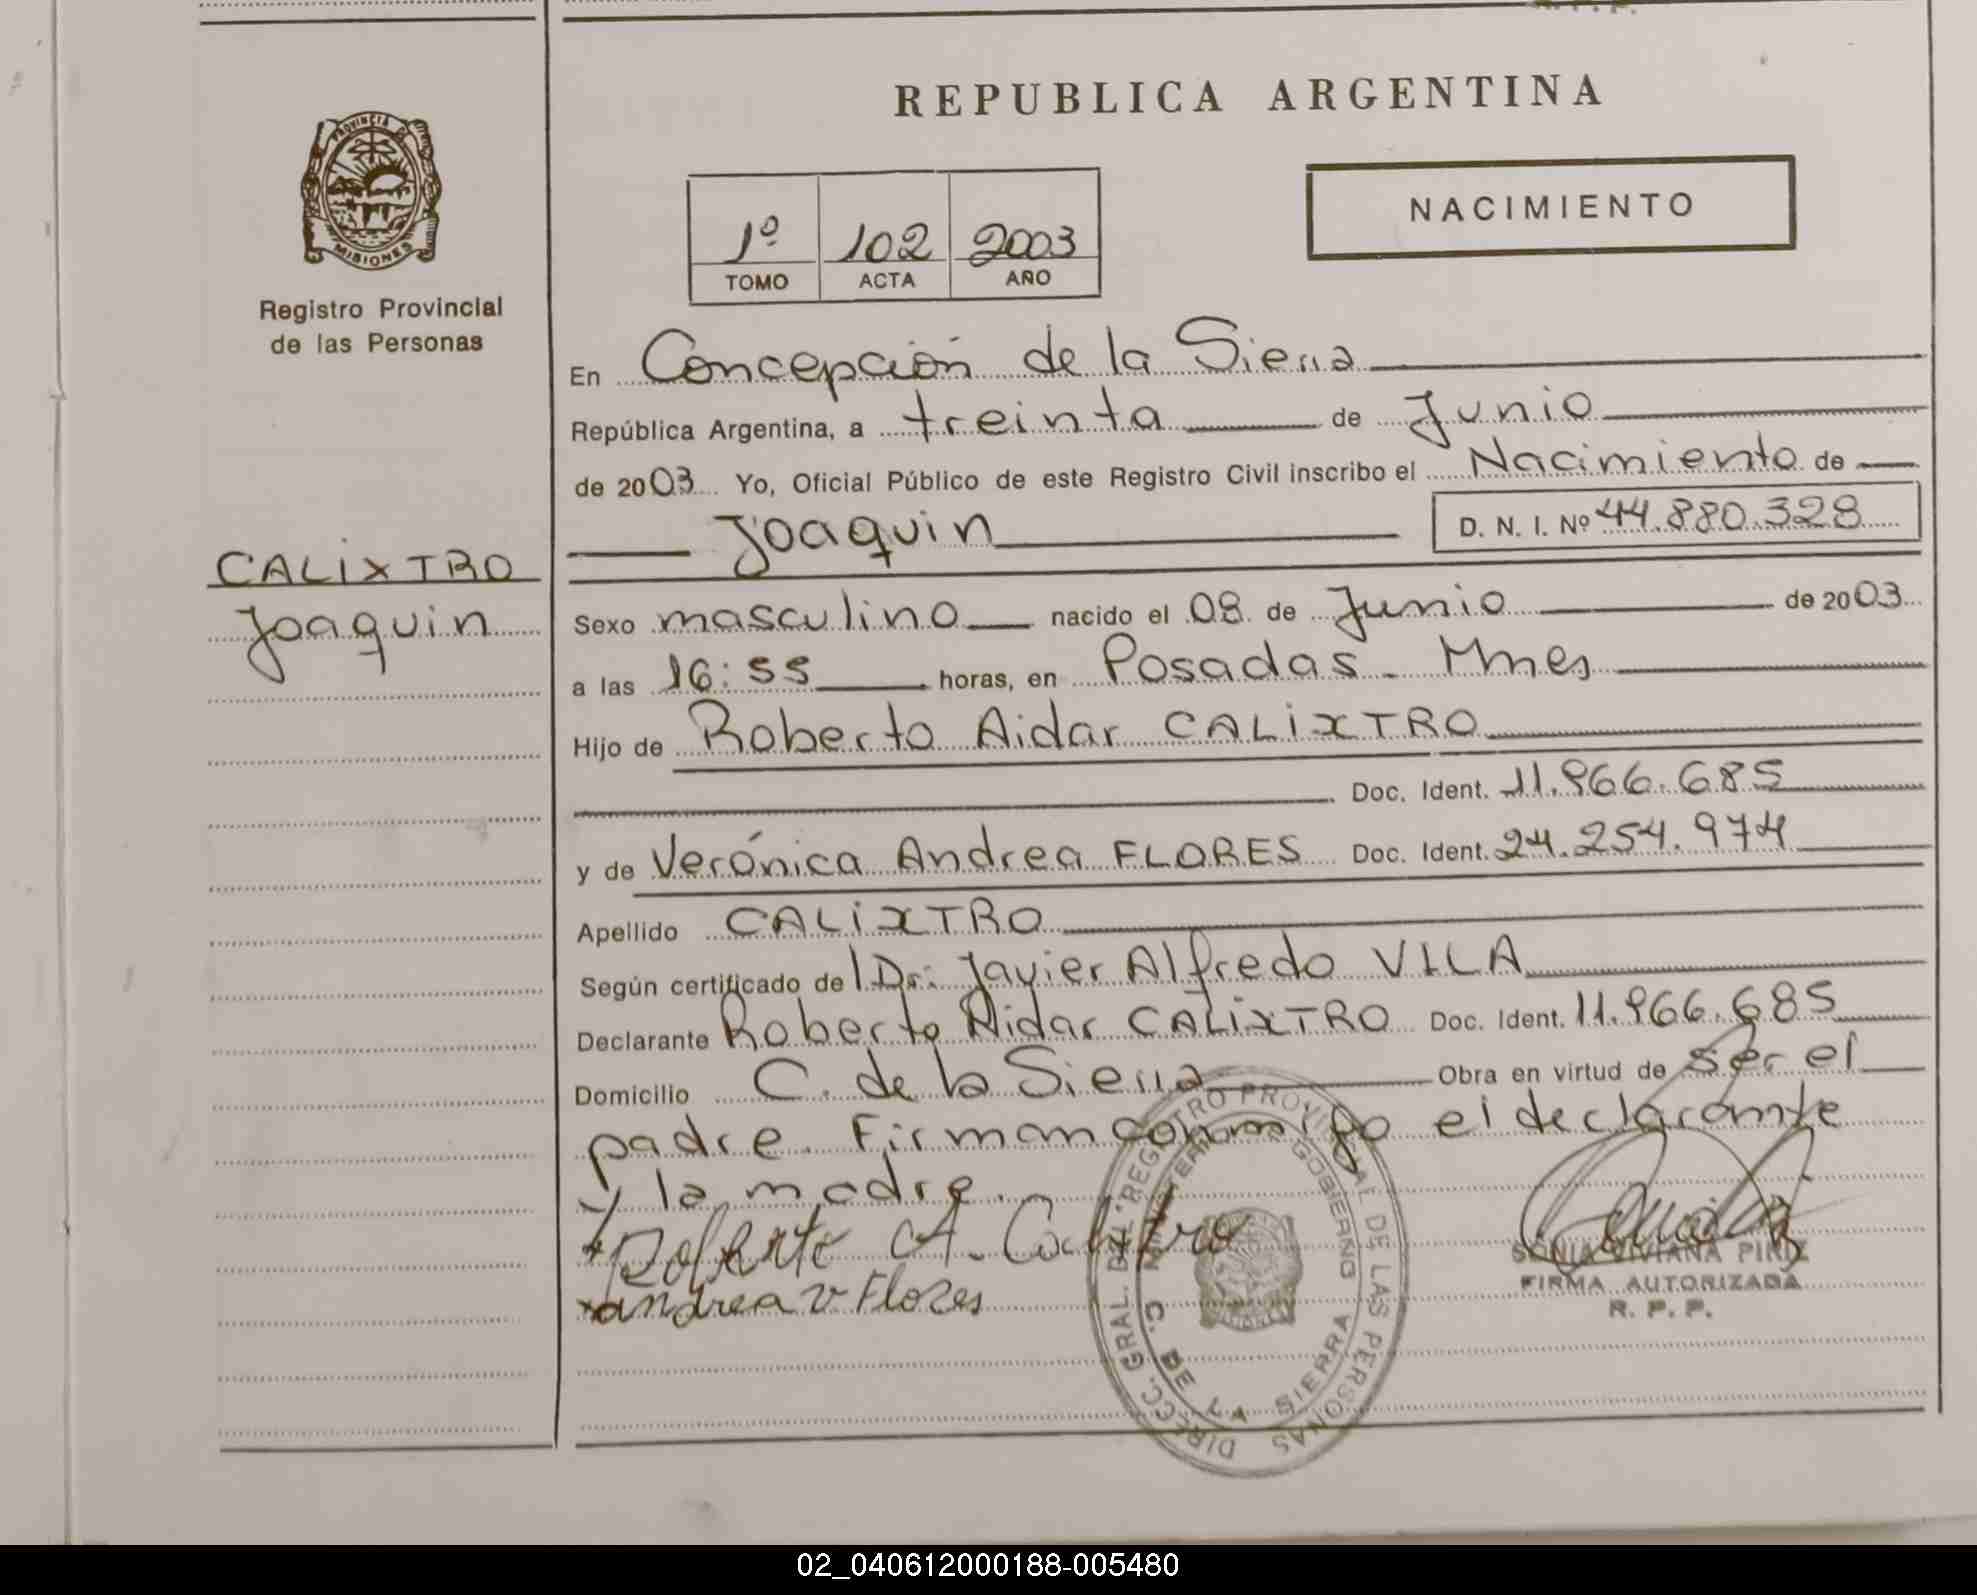 REPUBLICA ARGENTINA
PROVINCIA DE
MISIONES
Registro Provincial
de las Personas
1º 102 2003
TOMO ACTA AÑO
NACIMIENTO
CALIXTRO
Joaquin
En Concepción de la Sierra
República Argentina, a treinta de Junio
de 2003 Yo, Oficial Público de este Registro Civil inscribo el Nacimiento de
Joaquin D. N. I. Nº 44.880.328
Sexo masculino nacido el 08 de Junio de 2003
a las 16:55 horas, en Posadas - Mnes
Hijo de Roberto Aidar CALIXTRO
Doc. Ident. 11.966.685
y de Verónica Andrea FLORES Doc. Ident. 24.254.974
Apellido CALIXTRO
Según certificado de l Dr. Javier Alfredo VILA
Declarante Roberto Aidar CALIXTRO Doc. Ident. 11.966.685
Domicilio C. de la Sierra Obra en virtud de ser el
padre. Firman conmigo el declarante
y la madre.
Roberto A. Calixtro
andrea v Flores
DIRECC. GRAL. DEL REGISTRO PROVINCIAL DE LAS PERSONAS
MINISTERIO GOBIERNO
C. DE LA SIERRA
SONIA VIVIANA PIRIZ
FIRMA AUTORIZADA
R. P. P.
02_040612000188-005480